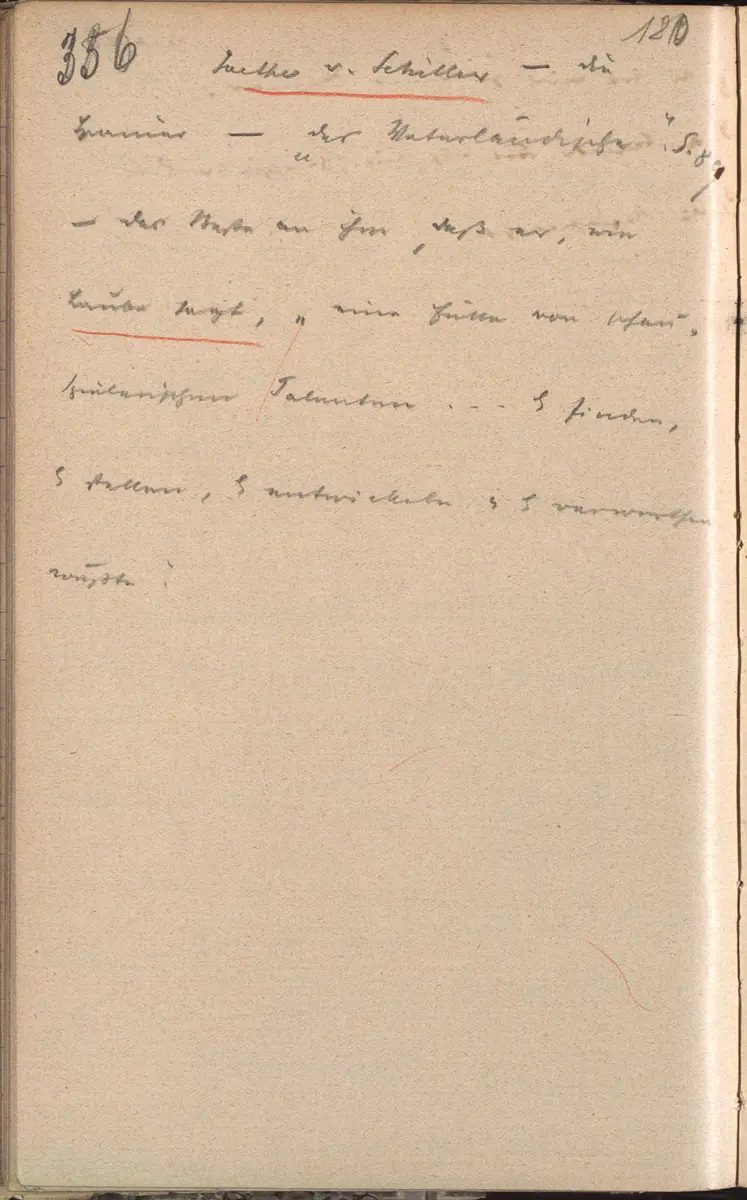 356
180
Goethe v. Schiller — die
— „das Vaterländische“. S. 89
— das Beste an ihm, daß er, wie
Laube sagt, „eine Fülle von schau-
spielerischen Talenten . . . z finden,
z stellen, z entwickeln u z verwerthen
wußte“